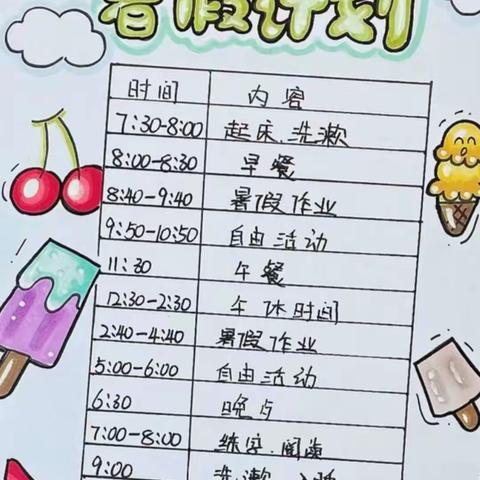 暑假计划
时间 内容
7:30-8:00 起床.洗漱
8:00-8:30 早餐
8:40-9:40 暑假作业
9:50-10:50 自由活动
11:30 午餐
12:30-2:30 午休时间
2:40-4:40 暑假作业
5:00-6:00 自由活动
6:30 晚点
7:00-8:00 练字.阅读
9:00 洗漱